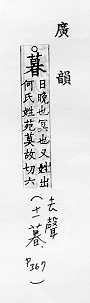 廣韻
暮
日晚也冥也又姓出
何氏姓苑莫故切六
去聲
(十一暮)
P.367